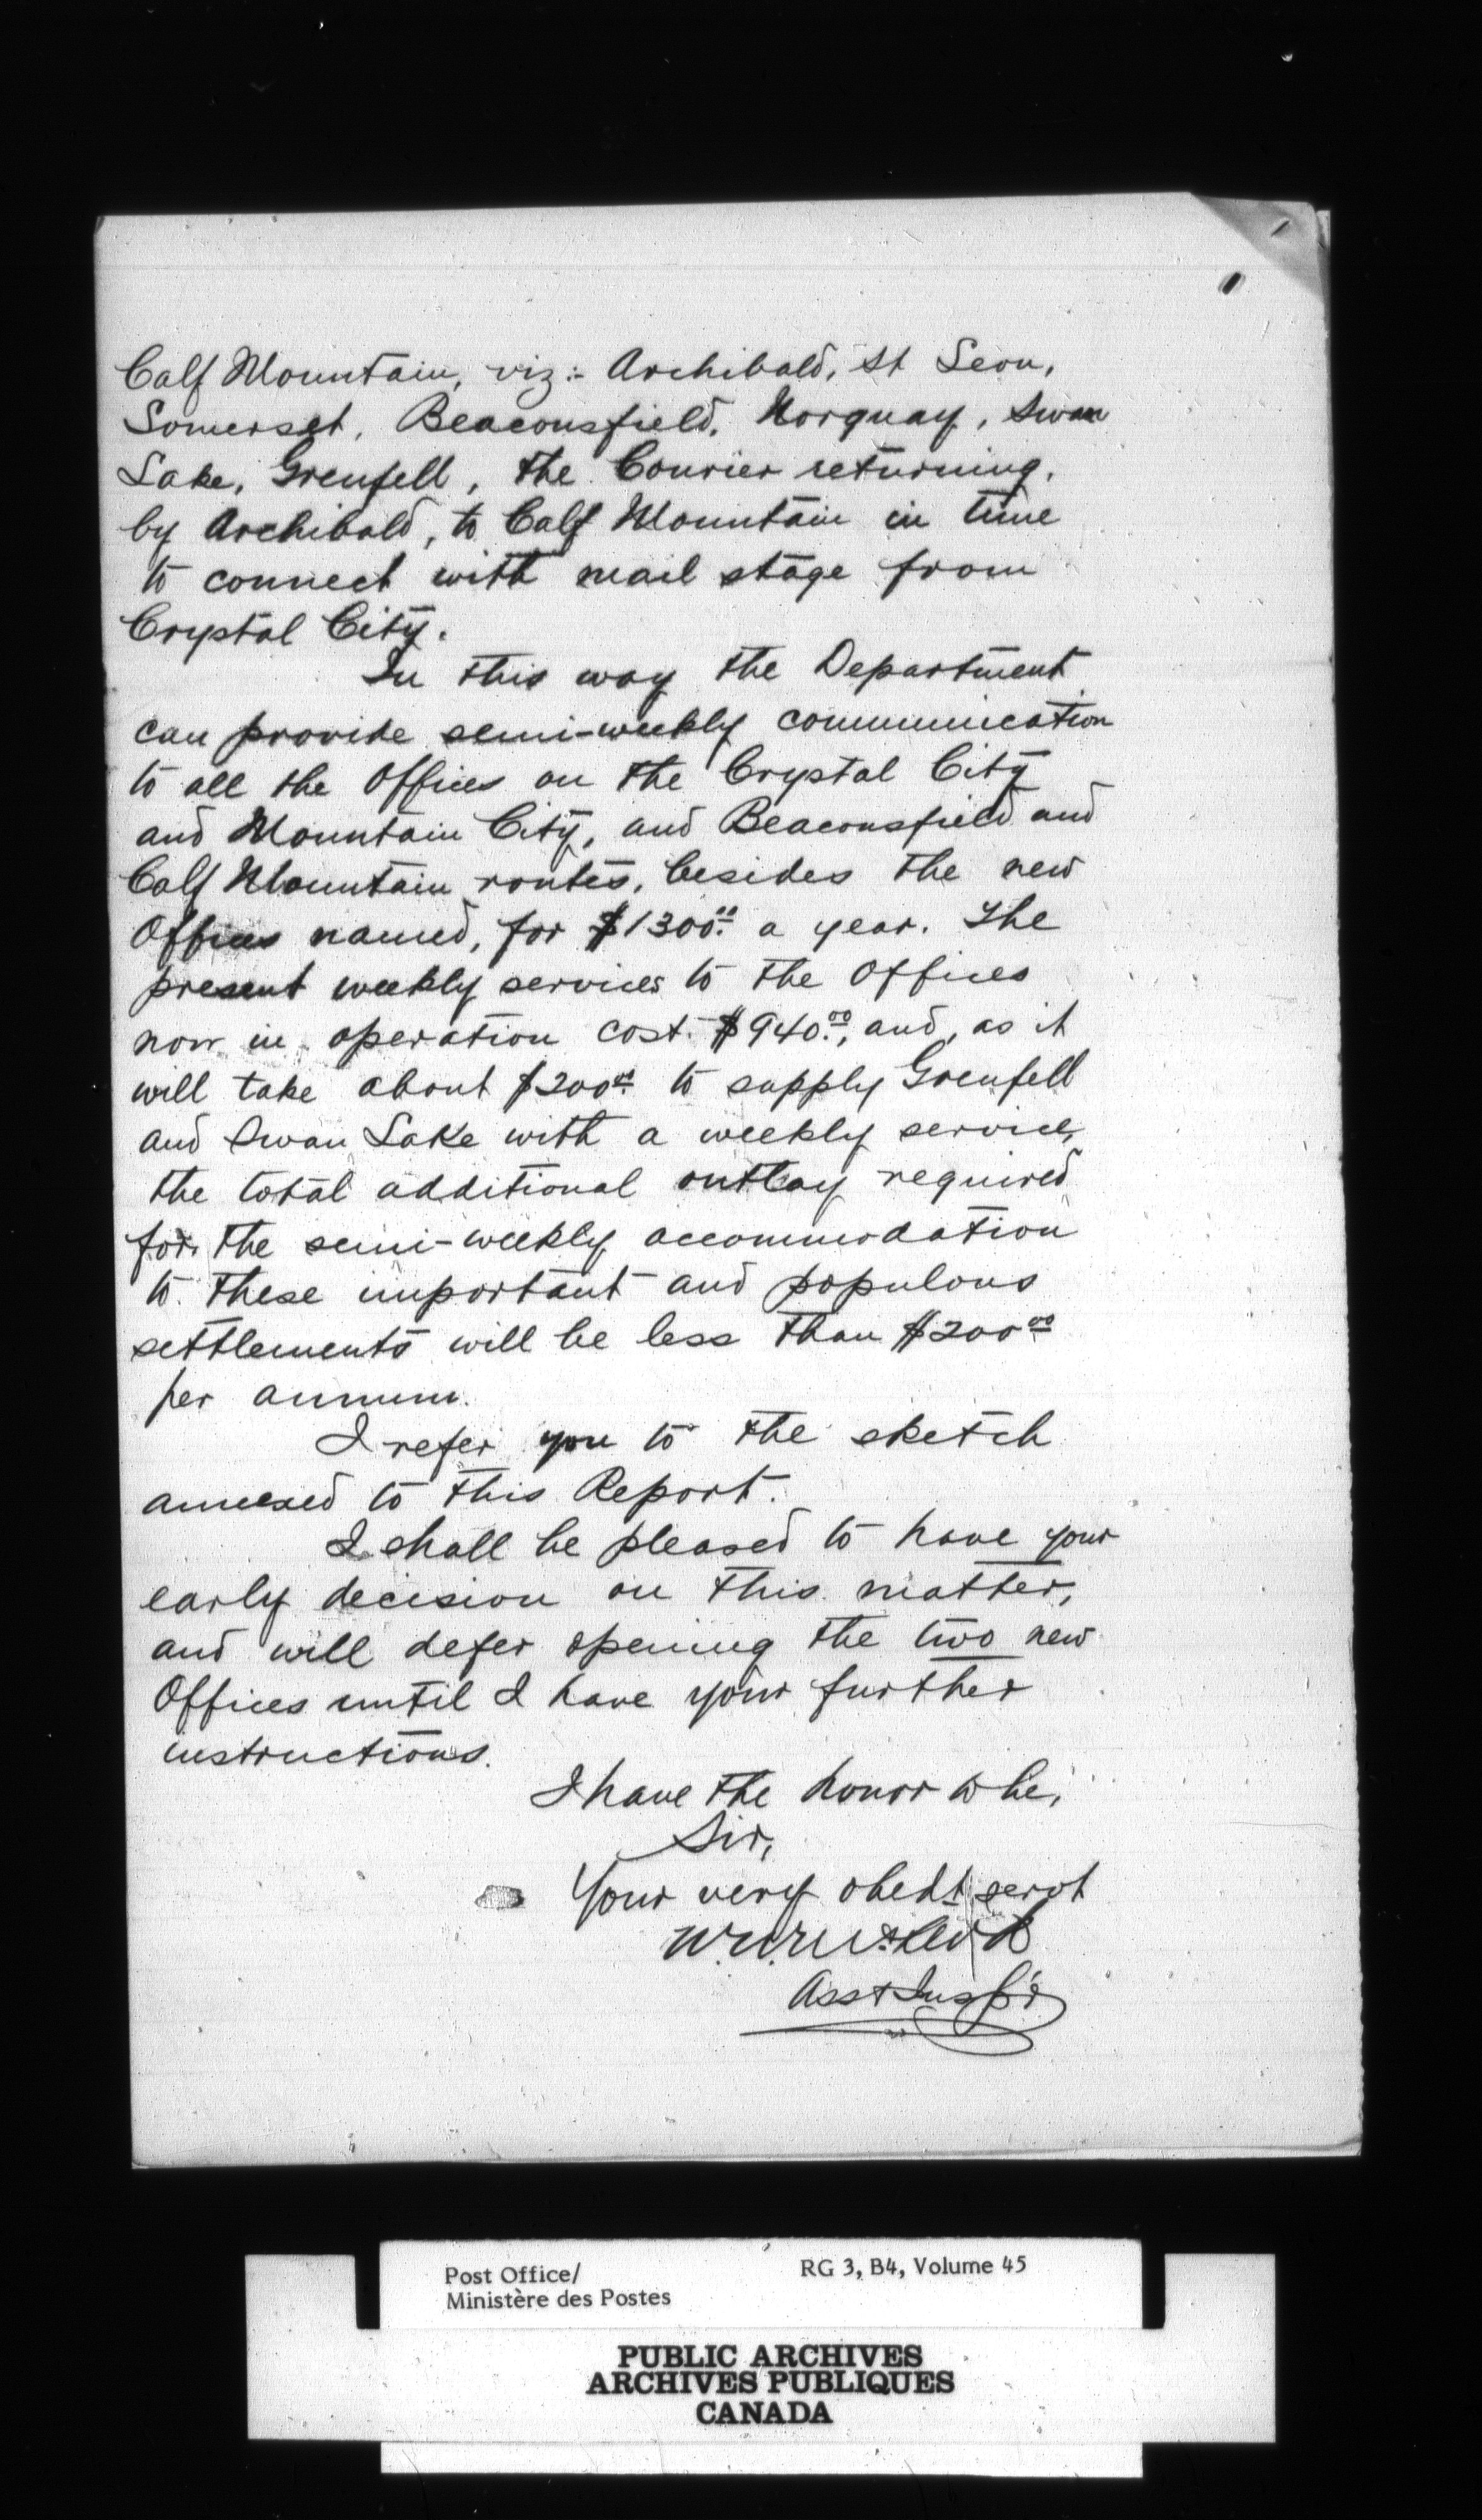 Calf Mountain, viz:- Archibald, St Leon,
Somerset, Beaconsfield, Norquay, Swan
Lake, Grenfell, the Courier returning,
by Archibald, to Calf Mountain in time
to connect with mail stage from
Crystal City.
In this way the Department
can provide semi-weekly communication
to all the Offices on the Crystal City
and Mountain City, and Beaconsfield and
Calf Mountain routes, besides the new
Offices named, for $1300.00 a year. The
present weekly services to the Offices
now in operation cost $940.00, and, as it
will take about $200.00 to supply Grenfell
and Swan Lake with a weekly service,
the total additional outlay required
for the semi-weekly accommodation
to these important and populous
settlements will be less than $200.00
per annum.
I refer you to the sketch
annexed to this Report.
I shall be pleased to have your
early decision on this matter,
and will defer opening the two new
Offices until I have your further
instructions.
I have the honor to be,
Sir,
Your very obedt servt
Asst Insp'r
Post Office/ RG 3, B4, Volume 45
Ministère des Postes
PUBLIC ARCHIVES
ARCHIVES PUBLIQUES
CANADA